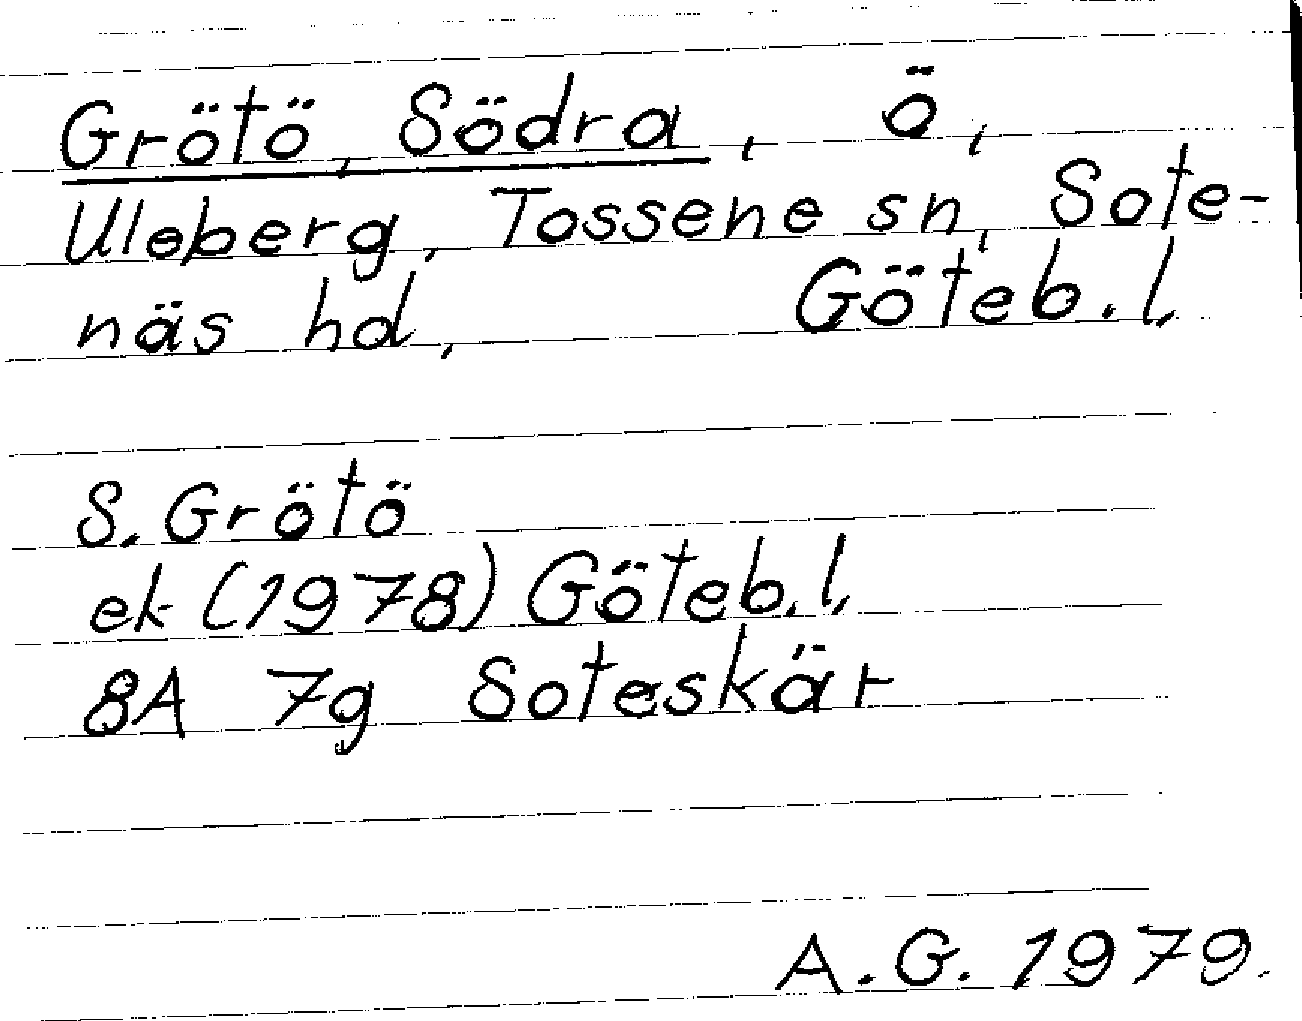 Grötö, Södra, ö,
Uleberg, Tossene sn, Sote-
näs hd, Göteb. l,
S. Grötö
ek (1978) Göteb. l,
8A 7g Soteskär
A. G. 1979.